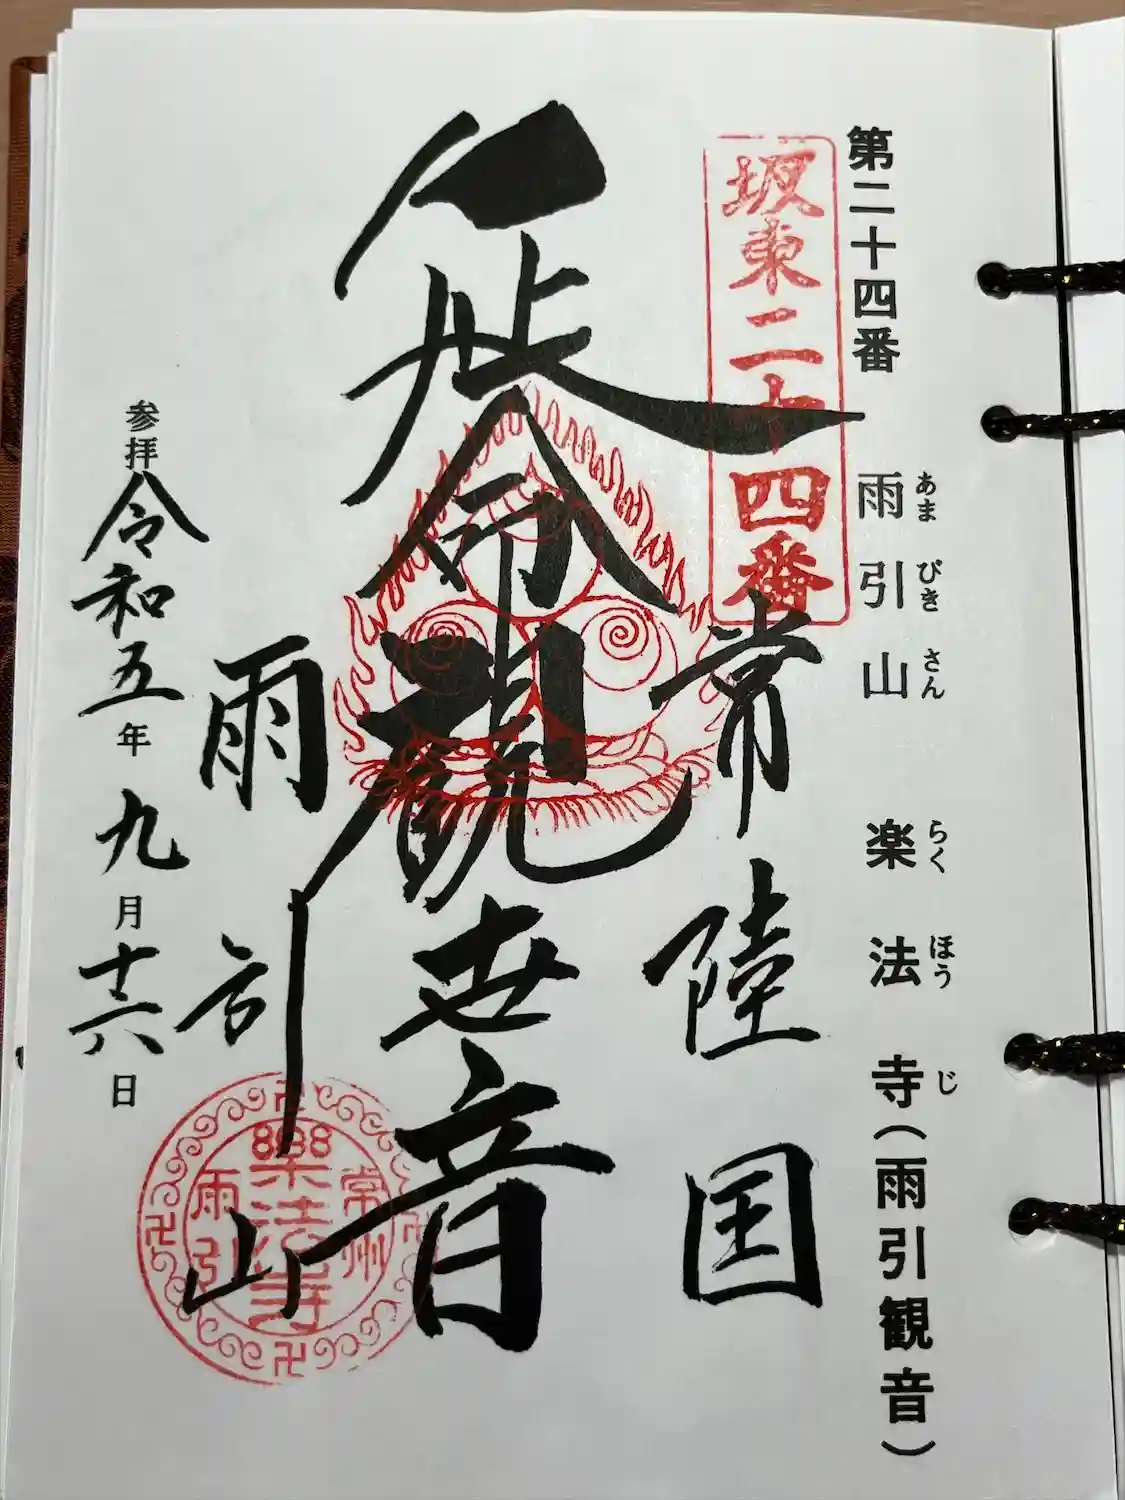 第二十四番 雨引山 楽法寺(雨引観音)
あまびきさん らくほうじ
坂東二十四番
常陸国
延命観世音
雨引山
常州
樂法寺
雨引
参拝令和五年九月十六日